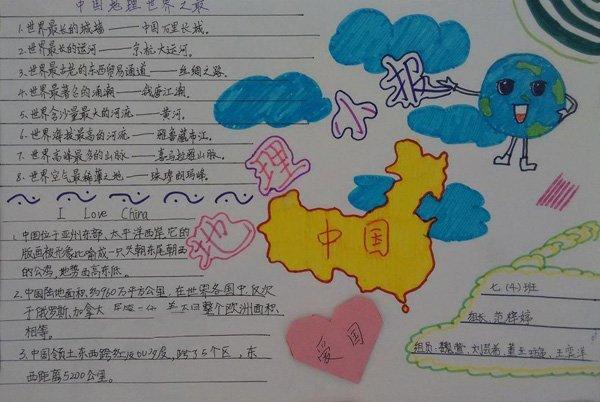 中国地理世界之最
1.世界最长的城墙——中国万里长城。
2.世界最长的运河——京杭大运河。
3.世界最古老的东西贸易通道——丝绸之路。
4.世界最著名的涌潮——钱唐江潮。
5.世界含沙量最大的河流——黄河。
6.世界海拔最高的河流——雅鲁藏布江。
7.世界高峰最多的山脉——喜马拉雅山脉。
8.世界空气最稀薄之地——珠穆朗玛峰。
I Love China
1.中国位于亚州东部、太平洋西岸,它的
版画被形象比喻成一只头朝东尾朝西
的公鸡,地势西高东低。
2.中国陆地面积约960万平方公里,在世界各国中,仅次
于俄罗斯、加拿大 整个欧洲面积
相等。
3.中国领土东西跨 度,跨了5个区,东
西距离5200公里。
地理小报
中国
爱国
七(4)班
组长:范梓婷
组员: 王奕洋